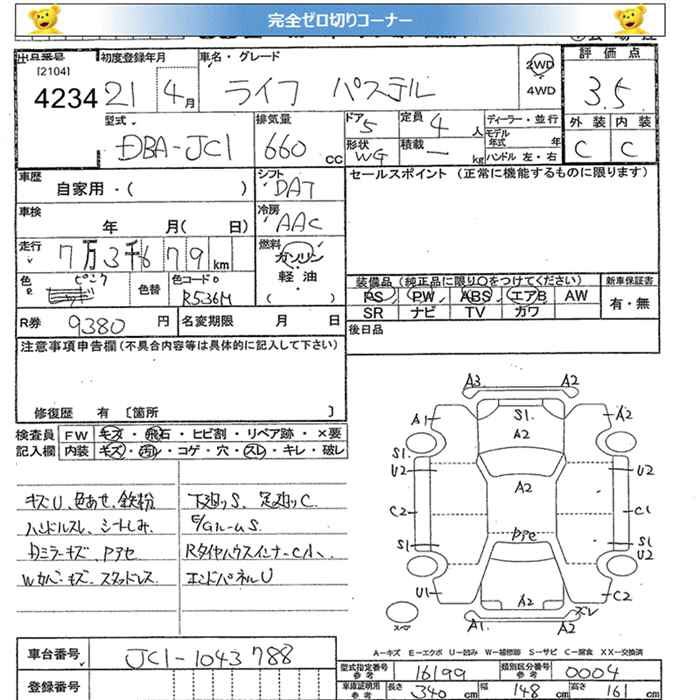 完全ゼロ切りコーナー
出品番号 初度登録年月 車名・グレード 評価点
[2104]
4234 21 4月 ライフ パステル 2WD 3.5
4WD
型式 排気量 ドア 5 定員 4人 ディーラー・並行 外装 内装
モデル年式 年
DBA-JC1 660cc 形状 WG 積載 ー kg ハンドル 左・右 C C
車歴 シフト セールスポイント (正常に機能するものに限ります)
自家用・( ) DAT
車検 冷房
年 月( 日) AAC
走行 燃料
7万3千679km ガソリン
軽油
色 ピンク 色替 色コードNo ( ) 装備品(純正品に限り○をつけてください) 新車保証書
R536M PS PW ABS エアB AW 有・無
SR ナビ TV カワ
R券 9380円 名変期限 月 日 後日品
注意事項申告欄(不具合内容等は具体的に記入して下さい)
修復歴 有 〔箇所 〕
検査員 FW キズ・飛石・ヒビ割・リペア跡・×要
記入欄 内装 キズ・汚レ・コゲ・穴・スレ・キレ・破レ
キズU、色あせ、鉄粉 下廻りS、足廻りC
ハンドルスレ、シートしみ E/GルームS
ドミラーキズ Pアセ RタイヤハウスインナーC小、
Wカバーキズ、スタッドレス エンドパネルU
A3 A2
A1 S1 A2
A2
S1
U2 A2 U2
C2 C1
Pアセ
S1 S1
U2
U1 A2 C2
スペア A1 A2 ズレ
A-キズ E-エクボ U-凹み W-補修跡 S-サビ C-腐食 XX-交換済
車台番号 JC1-1043788
型式指定番号 参考 16199 類別区分番号 参考 0004
登録番号 車庫証明用 参考 長さ 340cm 幅 148cm 高さ 161cm